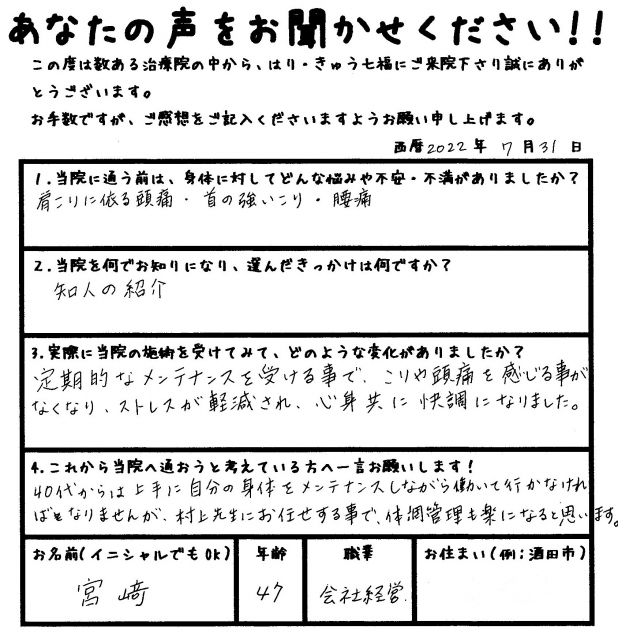 あなたの声をお聞かせください!!
この度は数ある治療院の中から、はり・きゅう七福にご来院下さり誠にありが
とうございます。
お手数ですが、ご感想をご記入くださいますようお願い申し上げます。
西暦2022年 7月31日
1.当院に通う前は、身体に対してどんな悩みや不安・不満がありましたか?
肩こりに依る頭痛・首の強いこり・腰痛
2.当院を何でお知りになり、選んだきっかけは何ですか?
知人の紹介
3.実際に当院の施術を受けてみて、どのような変化がありましたか?
定期的なメンテナンスを受ける事で、こりや頭痛を感じる事が
なくなり、ストレスが軽減され、心身共に快調になりました。
4.これから当院へ通おうと考えている方へ一言お願いします!
40代からは上手に自分の身体をメンテナンスしながら働いて行かなけれ
ばとなりませんが、村上先生にお任せする事で、体調管理も楽になると思います。
お名前(イニシャルでもOK) 年齢 職業 お住まい(例;酒田市)
宮﨑 47 会社経営.